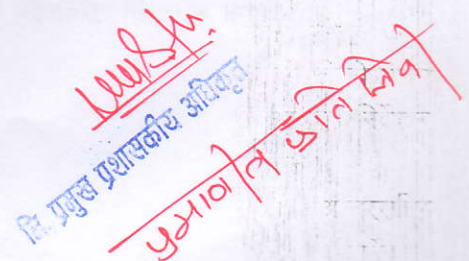 नि. प्रमुख प्रशासकीय अधिकृत
प्रमाणित प्रतिलिपी